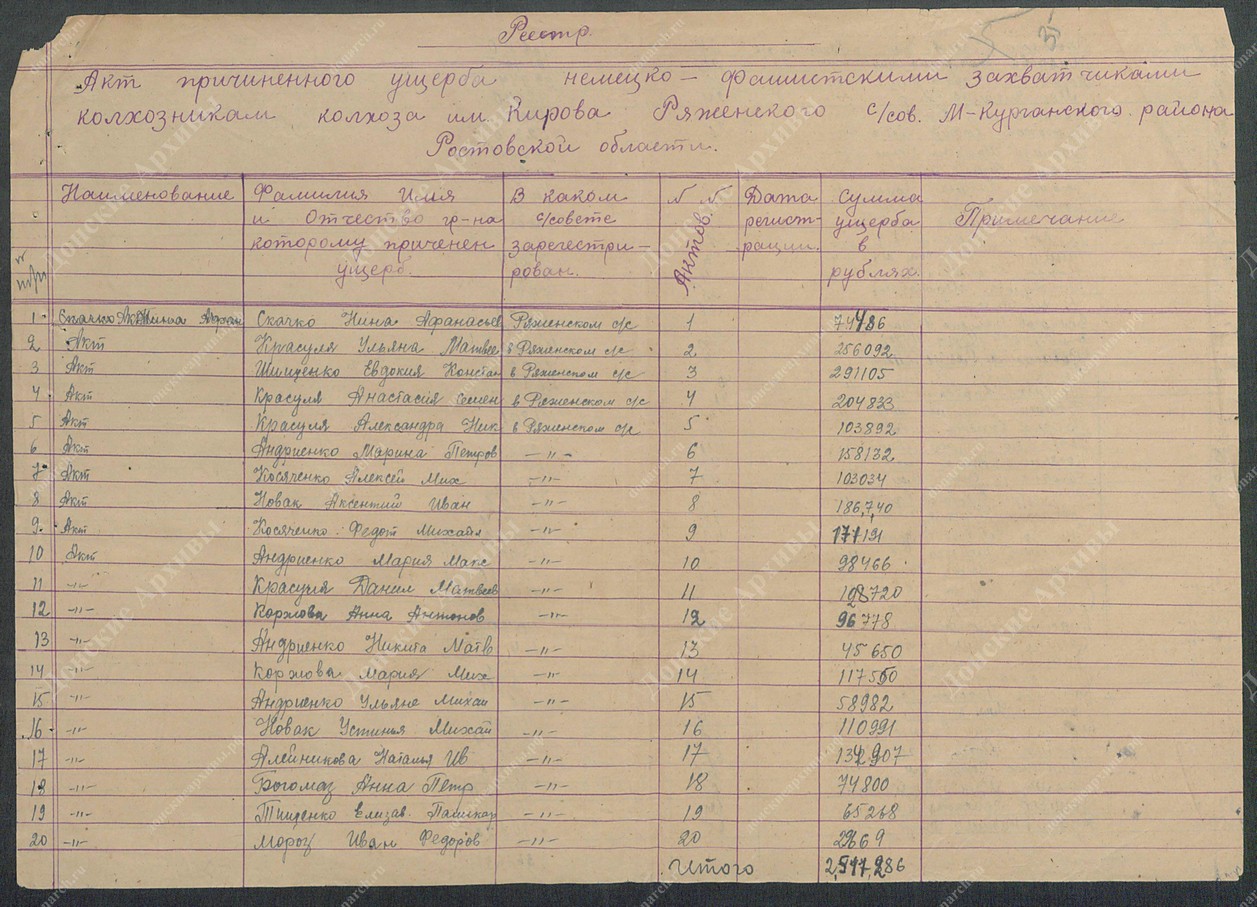 Реестр.
Акт причиненного ущерба немецко – фашистскими захватчиками
колхозникам колхоза им. Кирова Ряженского с/сов. М-Курганского района
Ростовской области.
№ п/п Наименование Фамилия Имя и Отчество гр-на которому приченен ущерб. В каком с/совете зарегестри–рован. N N Актов. Дата регист-рации. Сумма ущерба в рублях. Примечание
1 Скачко Нина Афанасьев Ряженском с/с 1 74486
2 Акт Красуля Ульяна Матвее в Ряженском с/с 2 256092
3 Акт Евдокия Констан в Ряженском с/с 3 291105
4 Акт Красуля Анастасия Семен в Ряженском с/с 4 204833
5 Акт Красуля Александра Ник в Ряженском с/с 5 103892
6 Акт Андриенко Марина Петров –"– 6 158132
7 Акт Косяченко Алексей Мих –"– 7 103034
8 Акт Новак Аксентий Иван –"– 8 186,740
9. Акт Косяченко Федот Михайл –"– 9
10 Акт Андриенко Мария Макс –"– 10 98466
11 –"– Красуля Данил Матвеев –"– 11
12 –"– Коржова Анна Антонов –"– 12 96778
13 –"– Андриенко Никита Матв –"– 13 45650
14 –"– Коржова Мария Мих –"– 14 117550
15 –"– Андриенко Ульяне Михай –"– 15 58982
16 –"– Новак Устинья Михай –"– 16 110991
17 –"– Алейникова Наталья Ив –"– 17
18 –"– Богомаз Анна Петр –"– 18 74800
19 –"– Тищенко Елизав. –"– 19 65268
20 –"– Мороз Иван Федоров –"– 20
Итого